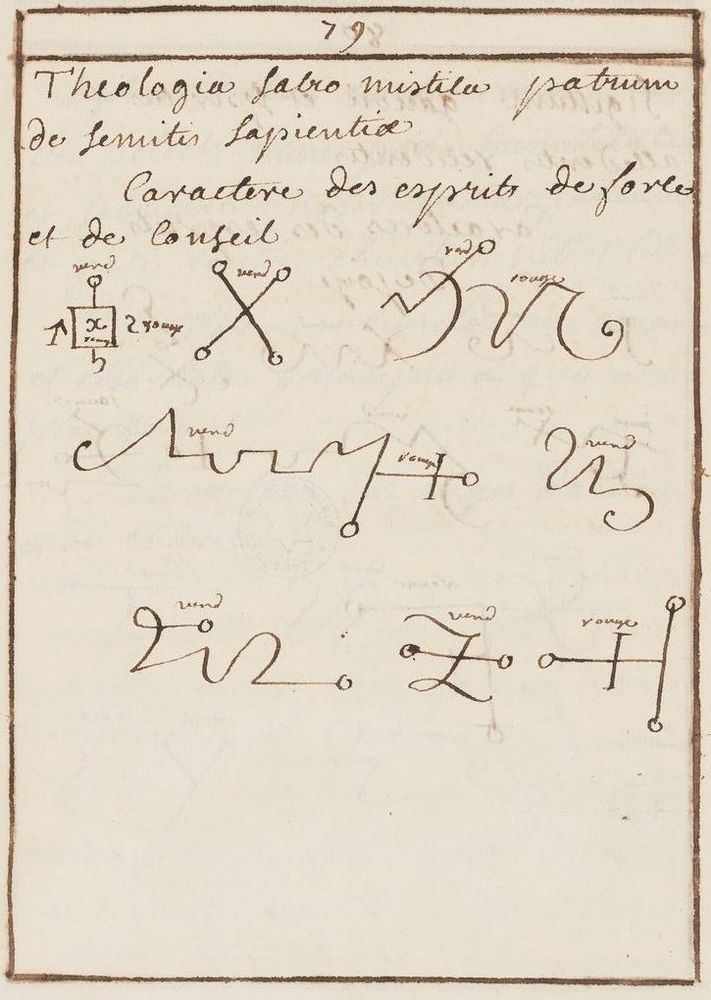 79
Theologia sabro mistica patrum
de semitis sapientiæ
Caractere des esprits de force
et de Conseil
verd verd verd rouge
x
rouge
2 rouge
verd rouge verd
verd verd rouge